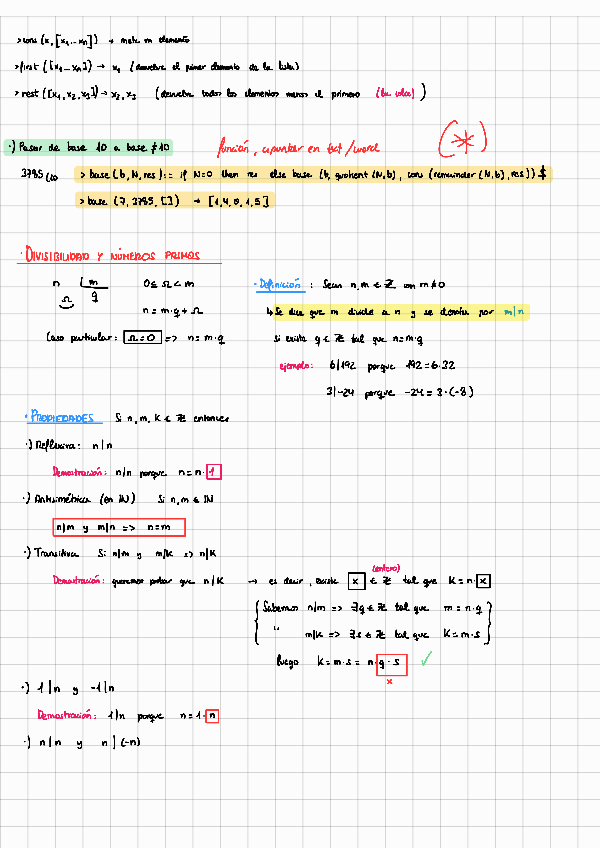 > cons (x, [x₁...xₙ]) → mete un elemento
> first ([x₁...xₙ]) → x₁ (devuelve el primer elemento de la lista)
> rest ([x₁,x₂,x₃]) → x₂,x₃ (devuelve todos los elementos menos el primero (la cola))
·) Pasar de base 10 a base ≠10 función, apuntar en txt/word (*)
3785(10 > base (b,N,res):= if N=0 then res else base (b, quotient (N,b), cons (remainder (N,b), res)) $
> base (7, 3785, []) → [1,4,0,1,5]
· DIVISIBILIDAD Y NÚMEROS PRIMOS
n |m 0≤r<m
r q
n = m·q + r
Caso particular: r=0 => n = m·q
· Definición : Sean n,m ∈ Z con m≠0
↳ Se dice que m divide a n y se denota por m|n
si existe q ∈ Z tal que n=m·q
ejemplo: 6|192 porque 192=6·32
3|-24 porque -24=3·(-8)
· PROPIEDADES Si n,m,K ∈ Z entonces
·) Reflexiva: n|n
Demostración: n|n porque n=n·1
·) Antisimétrica (en IN) Si n,m ∈ IN
n|m y m|n => n=m
·) Transitiva Si n|m y m|K => n|K
Demostración: queremos probar que n|K → es decir, existe x ∈ Z (entero) tal que K=n·x
Sabemos n|m => ∃q ∈ Z tal que m=n·q
" m|K => ∃s ∈ Z tal que K=m·s
luego K=m·s = n·q·s ✓
x
·) 1|n y -1|n
Demostración: 1|n porque n=1·n
·) n|n y n|(-n)